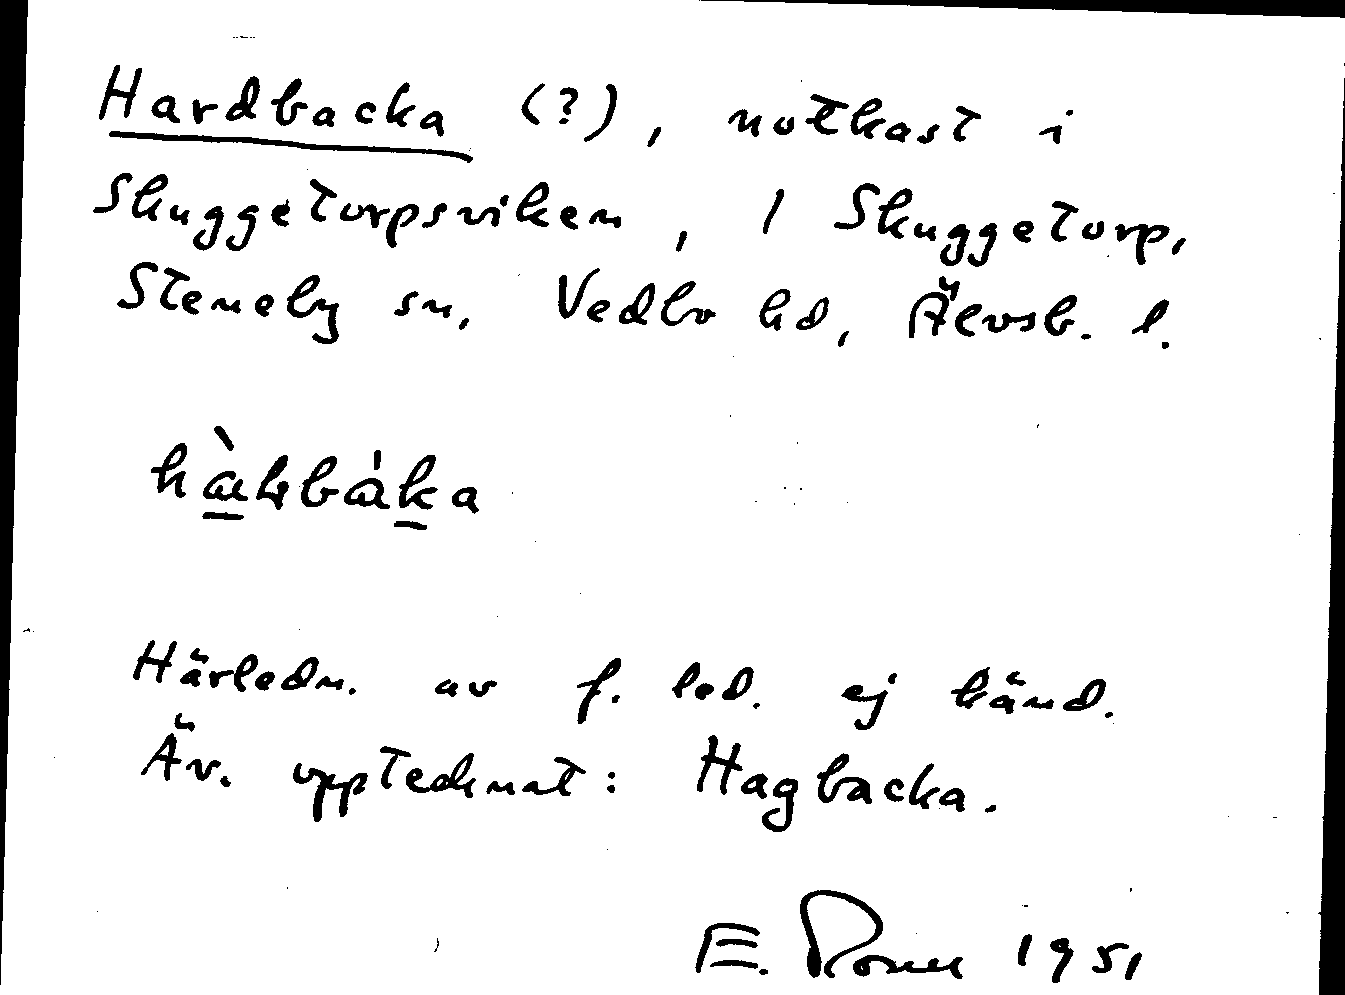 Hardbacka (?), notkast i
Skuggetorpsviken, / Skuggetorp,
Steneby sn, Vedbo hd, Älvsb. l.
Härledn. av f. led. ej känd.
Äv. upptecknat: Hagbacka.
E. 1951